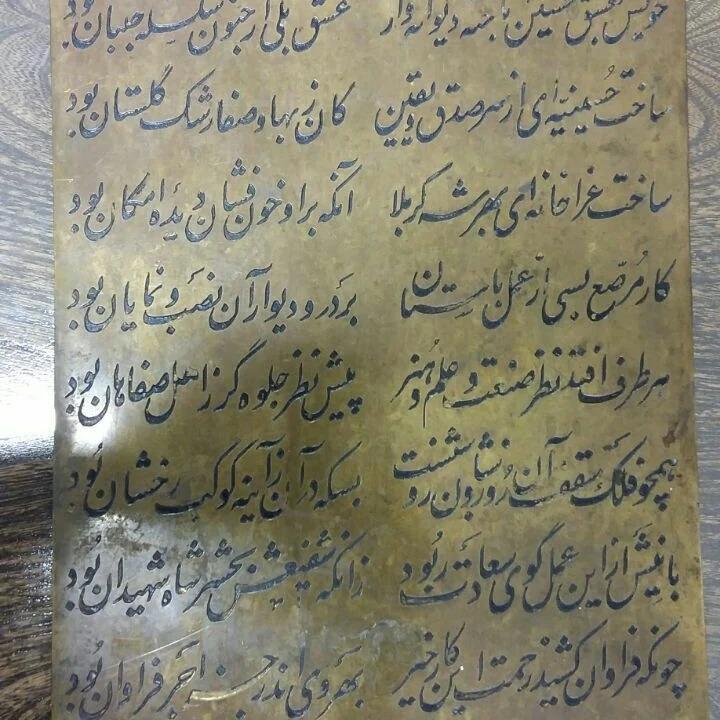 خویش بعشق حسین ساخته دیوانه وار عشق بلی از جنون سلسله جنبان بود
ساخت حُسینیّه ای از سر صدق و یقین کان ز بها و صفا رشک گلستان بود
ساخت عزاخانه ای بهر شه کربلا آنکه بر او خون فشان دیدهٔ امکان بود
کار مُرصّع بسی از عمل باستان بر در و دیوار آن نصب و نمایان بود
هر طرف افتد نظر صنعت و علم و هُنر پیش نظر جلوه گر ز اهل صفاهان بود
همچو فلک سقف آن روز و شبان بسکه در آن ز آینه کوکب رخشان بُود
بانیش از این عمل گوی سعادت ربُود زانکه شفیعش بحشر شاه شهیدان بُود
چونکه فراوان کشید زحمت این کار خیر بهر وی اندر جزا اجر فراوان بُود